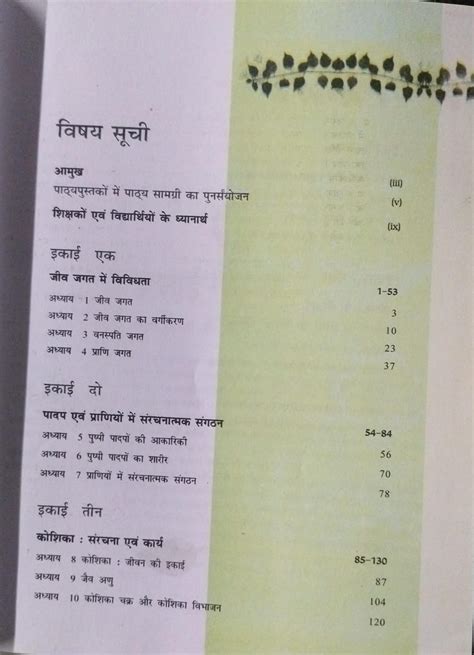 विषय सूची
आमुख (iii)
पाठ्यपुस्तकों में पाठ्य सामग्री का पुनर्संयोजन (v)
शिक्षकों एवं विद्यार्थियों के ध्यानार्थ (ix)
इकाई एक
जीव जगत में विविधता 1-53
अध्याय 1 जीव जगत 3
अध्याय 2 जीव जगत का वर्गीकरण 10
अध्याय 3 वनस्पति जगत 23
अध्याय 4 प्राणि जगत 37
इकाई दो
पादप एवं प्राणियों में संरचनात्मक संगठन 54-84
अध्याय 5 पुष्पी पादपों की आकारिकी 56
अध्याय 6 पुष्पी पादपों का शारीर 70
अध्याय 7 प्राणियों में संरचनात्मक संगठन 78
इकाई तीन
कोशिका : संरचना एवं कार्य 85-130
अध्याय 8 कोशिका : जीवन की इकाई 87
अध्याय 9 जैव अणु 104
अध्याय 10 कोशिका चक्र और कोशिका विभाजन 120